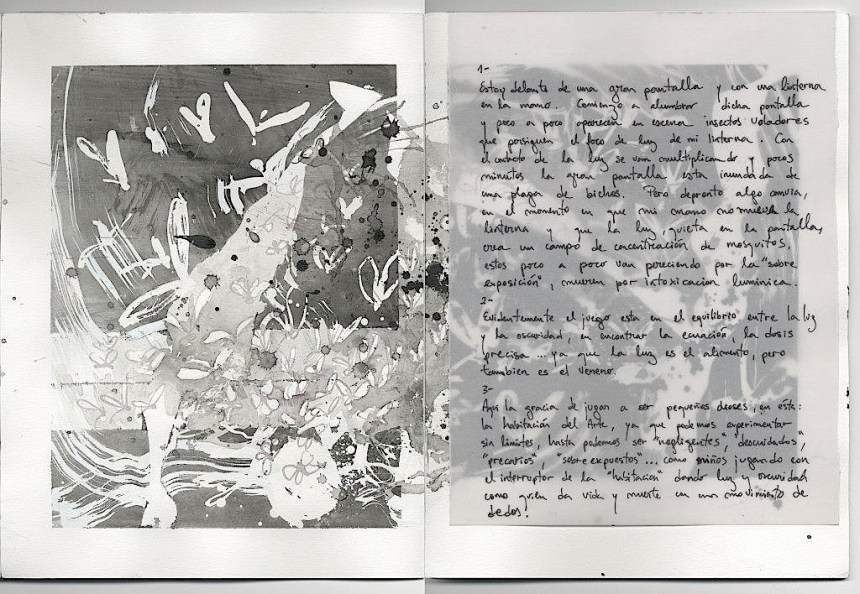 1-
Estoy delante de una gran pantalla y con una linterna
en la mano. Comienzo a alumbrar dicha pantalla
y poco a poco aparecen en escena insectos voladores
que persiguen el foco de luz de mi linterna. Con
el contacto de la luz se van multiplicando y pocos
minutos la gran pantalla esta inundada de
una plaga de bichos. Pero depronto algo camvia,
en el momento en que mi mano no mueve la
linterna y que la luz, quieta en la pantalla,
crea un campo de concentración de mosquitos,
estos poco a poco van pereciendo por la "sobre
exposición", mueren por intoxicacion luminica.
2-
Evidentemente el juego esta en el equilibrio entre la luz
y la oscuridad, en encontrar la ecuación, la dosis
precisa... ya que la luz es el alimento, pero
tambien es el veneno.
3-
Aqui la gracia de jugar a ser pequeños dioses, en esta:
la habitación del Arte, ya que podemos experimentar
sin limites, hasta podemos ser "negligentes", descuidados",
"precarios", "sobre expuestos"... como niños jugando con
el interruptor de la "habitación" dando luz y oscuridad
como quien da vida y muerte en un movimiento de
dedos!